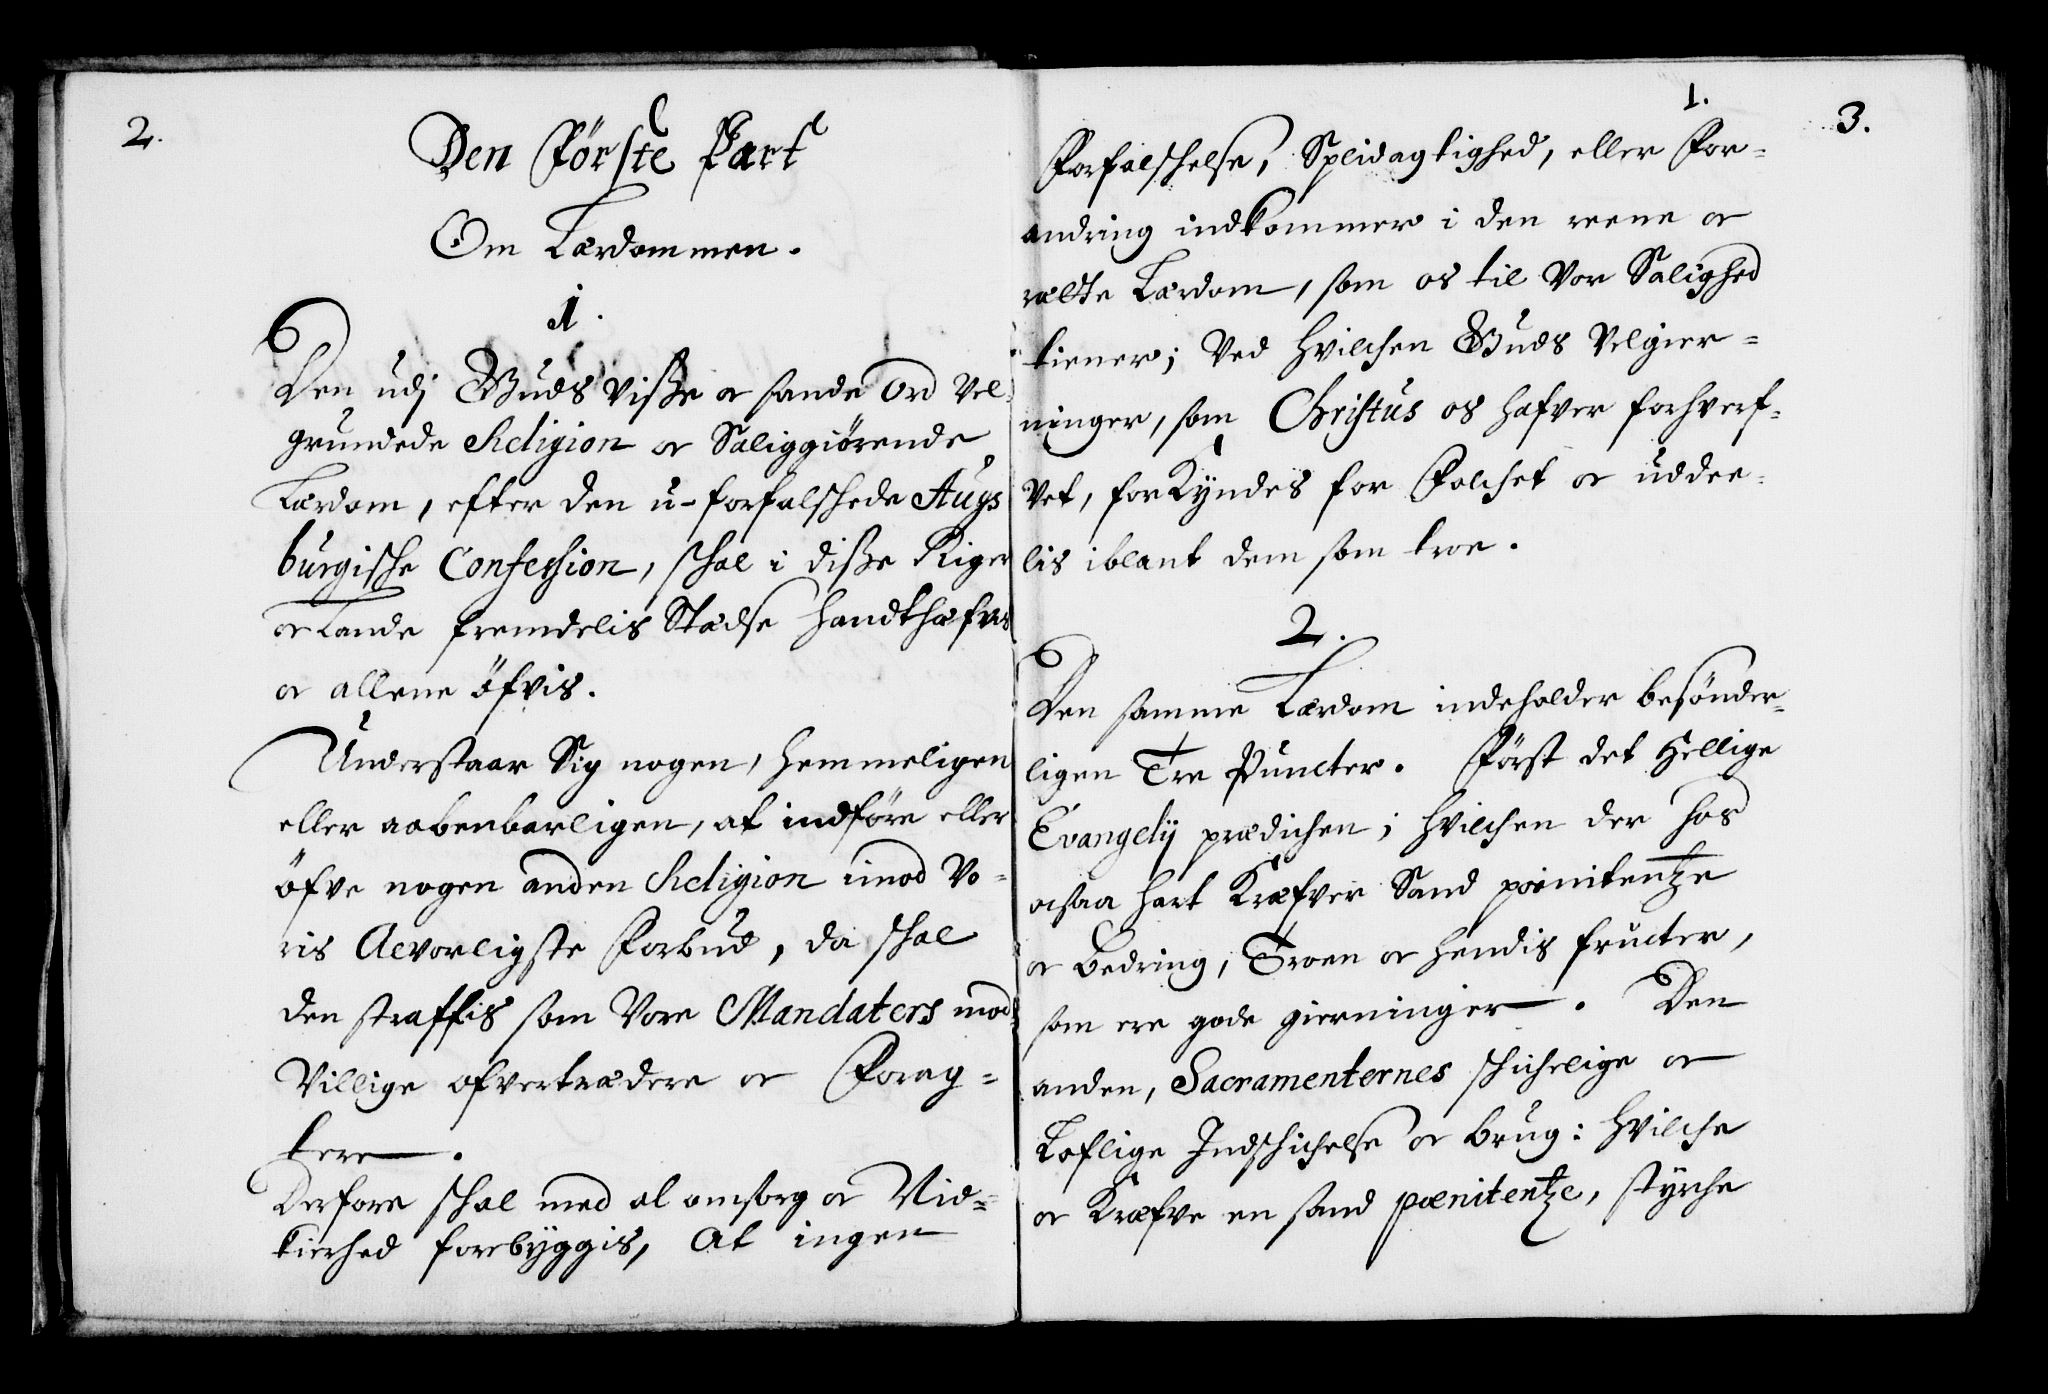 2.
Den Förste Part
Om Lærdommen.
1.
Den udj Guds visse oc sande Ord vel
grundede Religion oc Saliggiörende
Lærdom, efter den u-forfalschede Augs
burgische Confession, schal i disse Riger
oc Lande fremdelis Stædse handthæfvis
oc allene öfvis.
Understaar Sig nogen, hemmeligen
eller aabenbarligen, at indföre eller
öfve nogen anden Religion imod Vo-
ris Alvorligste Forbud, da schal
den straffis som Vore Mandaters mod
Villige ofvertrædere oc Forag=
tere.
Derfore schal med al omsorg oc Vid=
kierhed forebyggis, At ingen
1.
3.
Forfalschelse, Splidagtighed, eller For=
andring indkommer i den reene oc
rætte Lærdom, som os til Vor Salighed
tiener; Ved hvilchen Guds Velgier=
ninger, som Christus os hafver forhverf=
vet, forkyndes for Folchet oc uddee=
lis iblant dem som troe.
2.
Den samme Lærdom indeholder besönder=
ligen Tre Puncter. Först det Hellige
Evangelij prædichen; hvilchen der hos
ocsaa hart Kræfver Sand poenitentze
oc Bedring, Troen oc hendis fructer,
som ere gode gierninger. Den
anden, Sacramenternes schichelige oc
Loflige Indschichelse oc brug: hvilche
oc Kræfve en sand pænitentze, styrche